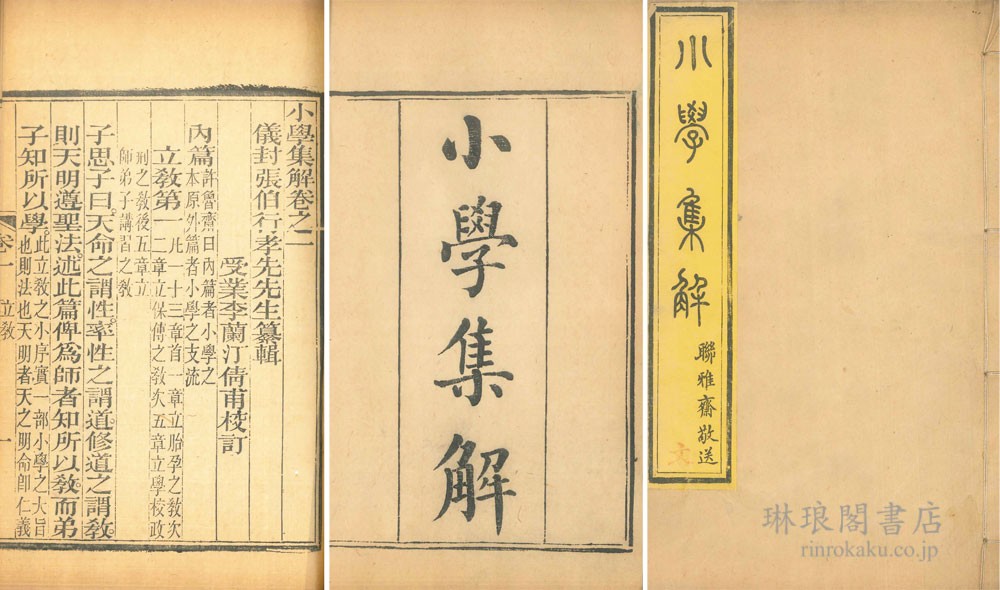 小學集解卷之一
儀封張伯行孝先先生纂輯
受業李蘭汀倩甫校訂
內篇
許魯齋曰內篇者小學之
本原外篇者小學之支流
立敎第一
此一十三章首一章立胎孕之敎次
二章立保傅之敎次五章立學校政
刑之敎後五章立
師弟子講習之敎
子思子曰天命之謂性率性之謂道修道之謂敎
則天明遵聖法述此篇俾爲師者知所以敎而弟
子知所以學
此立敎之小序實一部小學之大旨
也則法也天明者天之明命卽仁義
卷一 立敎 一
小學集解
小學集解
聯雅齋敬送
文
琳琅閣書店
rinrokaku.co.jp